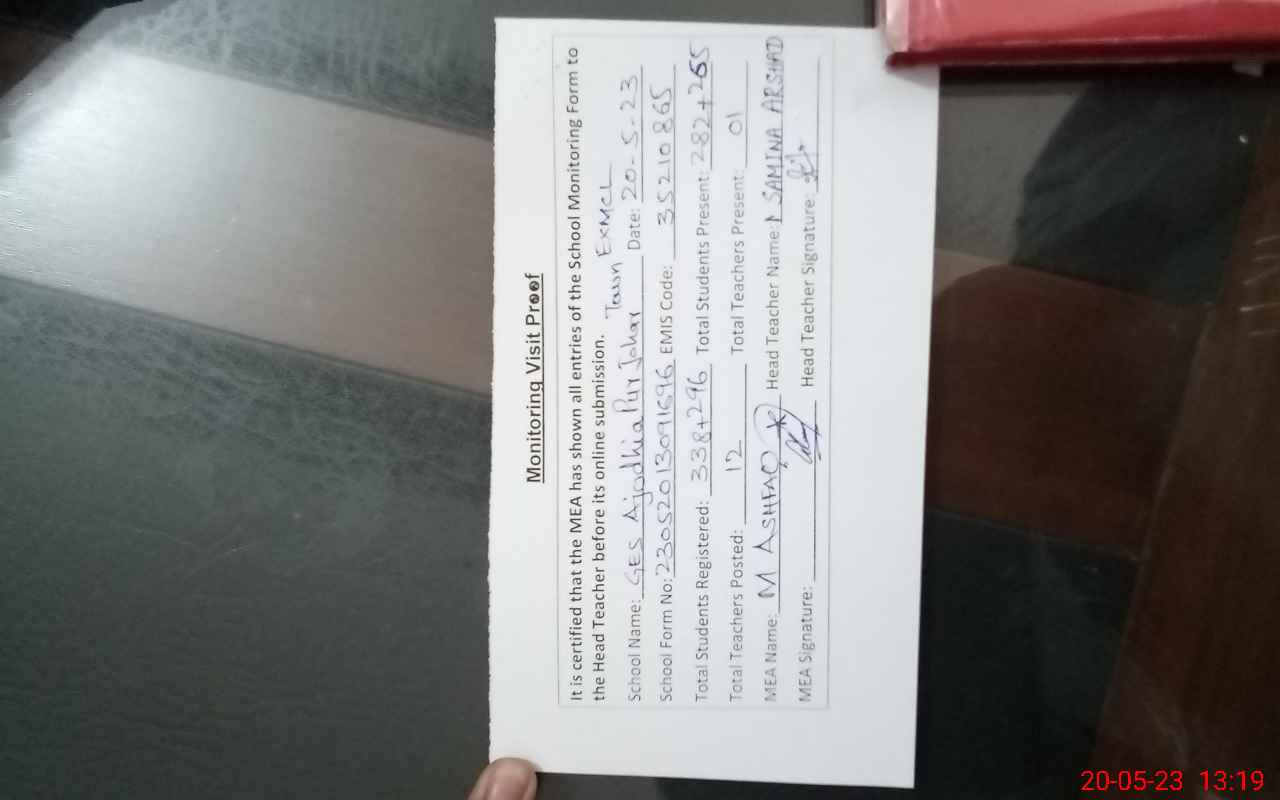 Monitoring Visit Proof
It is certified that the MEA has shown all entries of the School Monitoring Form to
the Head Teacher before its online submission.
School Name: GES Ajodhia Pur Johar Town EXMCL Date: 20-5-23
School Form No: 23052013091696 EMIS Code: 35210865
Total Students Registered: 338+296 Total Students Present: 282+265
Total Teachers Posted: 12 Total Teachers Present: 01
MEA Name: M ASHFAQ Head Teacher Name: SAMINA ARSHAD
MEA Signature: Head Teacher Signature:
20-05-23 13:19